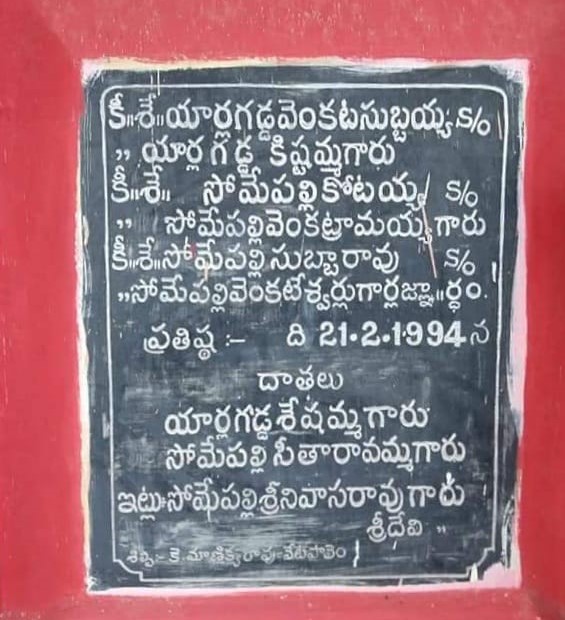 కీ॥శే॥ యార్లగడ్డవెంకటసుబ్బయ్య S/o
,, యార్లగడ్డ కిష్టమ్మగారు
కీ॥శే॥ సోమేపల్లికోటయ్య S/o
,, సోమేపల్లివెంకట్రామయ్య గారు
కీ॥శే॥సోమేపల్లి సుబ్బారావు S/o
,,సోమేపల్లివెంకటేశ్వర్లుగార్లజ్ఞా॥ర్ధం.
ప్రతిష్ఠ :- ది 21.2.1994న
దాతలు
యార్లగడ్డ శేషమ్మ గారు
సోమేపల్లి సీతారావమ్మగారు
ఇట్లుఃసోమేపల్లిశ్రీనివాసరావుగారు
శ్రీదేవి ,,
శిల్పి:- కె.మాణిక్యరావు-వేటపాలెం